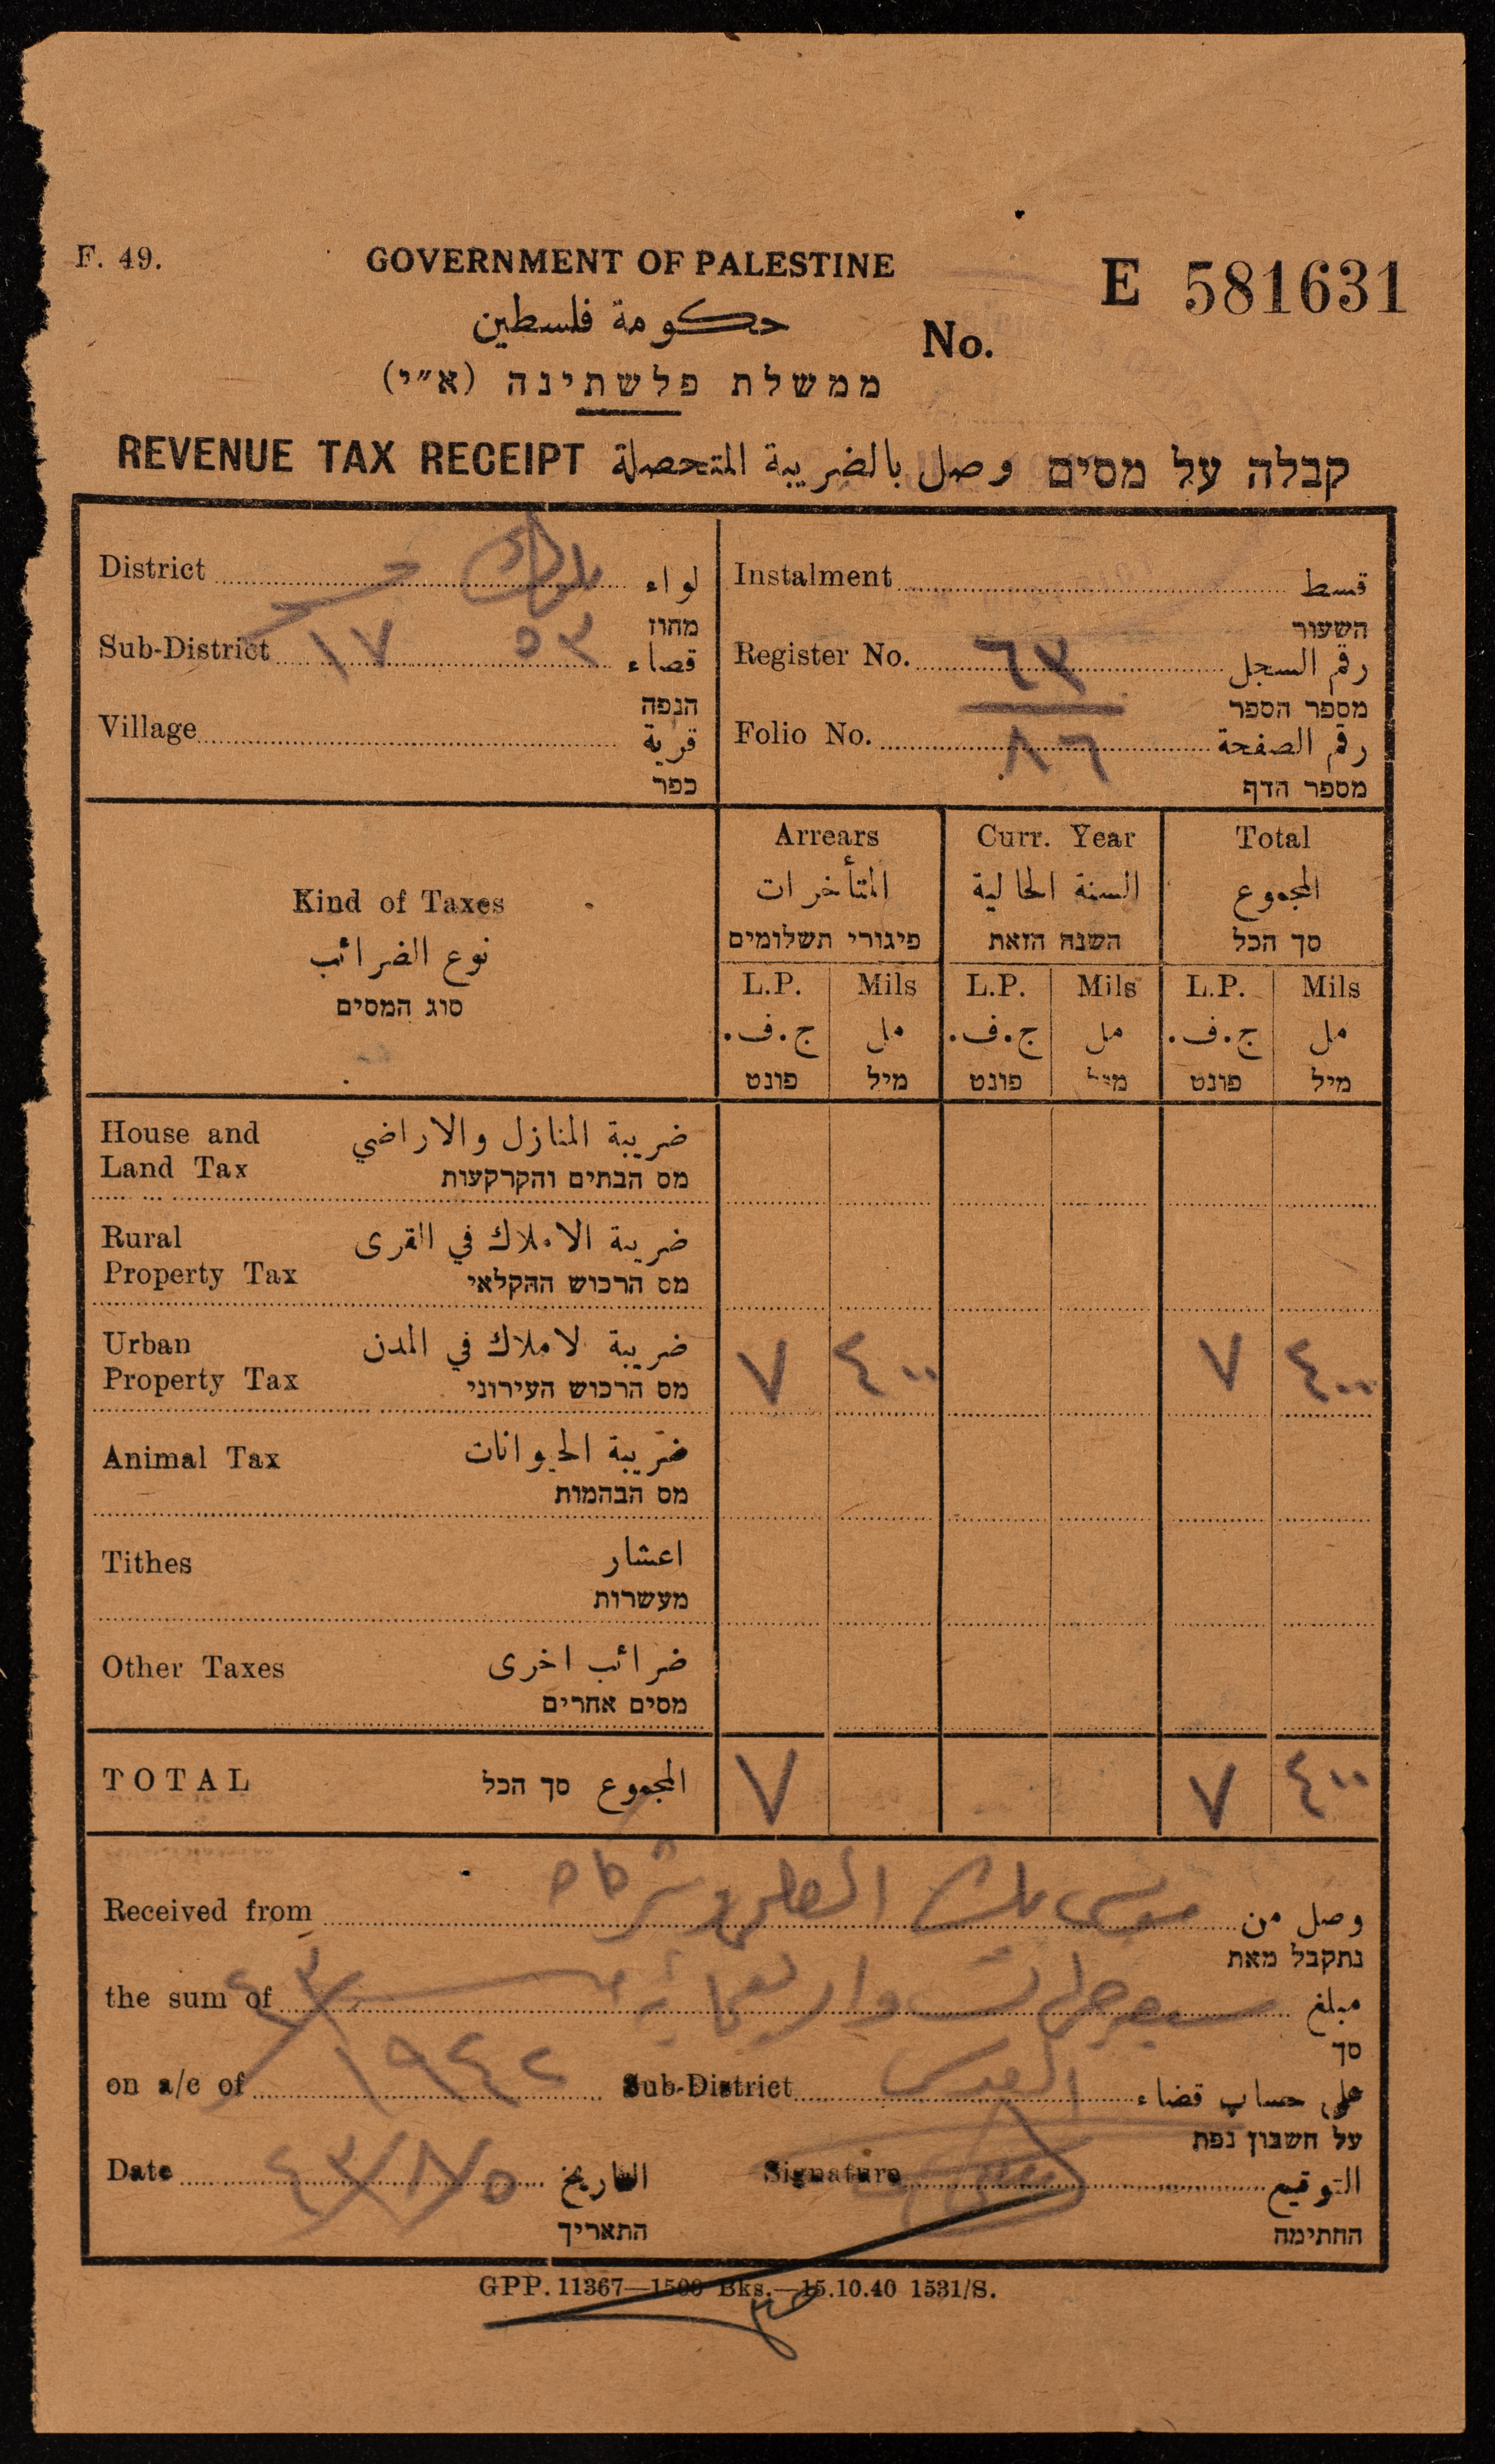 F. 49.
GOVERNMENT OF PALESTINE
E 581631
حكومة فلسطين
No.
ממשלת פלשתינה (א״י)
REVENUE TAX RECEIPT وصل بالضريبة المتحصلة קבלה על מסים
District لواء
מחוז
Sub-District ١٧ ٥٣ قضاء
הנפה
Village قرية
כפר
Instalment قسط
השעור
Register No. ٦٣ رقم السجل
מספר הספר
Folio No. ٨٦ رقم الصفحة
מספר הדף
Kind of Taxes
نوع الضرائب
סוג המסים
Arrears Curr. Year Total
المتأخرات السنة الحالية المجموع
פיגורי תשלומים השנה הזאת סך הכל
L.P. Mils L.P. Mils L.P. Mils
ج.ف. مل ج.ف. مل ج.ف. مل
פונט מיל פונט מיל פונט מיל
House and ضريبة المنازل والاراضي
Land Tax מס הבתים והקרקעות
Rural ضريبة الاملاك في القرى
Property Tax מס הרכוש החקלאי
Urban ضريبة لاملاك في المدن ٧ ٤٠٠ ٧ ٤٠٠
Property Tax מס הרכוש העירוני
Animal Tax ضريبة الحيوانات
מס הבהמות
Tithes اعشار
מעשרות
Other Taxes ضرائب اخرى
מסים אחרים
TOTAL المجموع סך הכל ٧ ٧ ٤٠٠
Received from موسى بك العلمي وشركاه وصل من
נתקבל מאת
the sum of سبع جنيهات واربعماية مل مبلغ
סך
on a/c of ١٩٤٢ Sub-District القدس على حساب قضاء
על חשבון נפת
Date ٥/٨/٤٣ التاريخ Signature التوقيع
התאריך החתימה
GPP. 11367—1500 Bks.—15.10.40 1531/S.